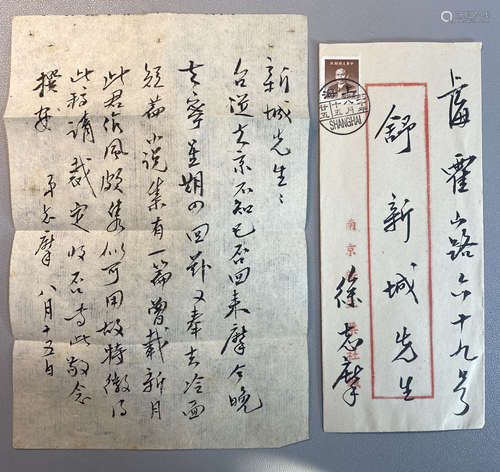 新城先生：
台从去京不知已否回来摩今晚
去宁星期四回
短篇小说集有一篇曾载新月
此君作风颇隽似可用故特徵得
此稿请裁定收否专此敬念
撰安
志摩 八月十五日
上海霍山路六十九号
舒新城先生
南京
徐志摩
上海
SHANGHAI